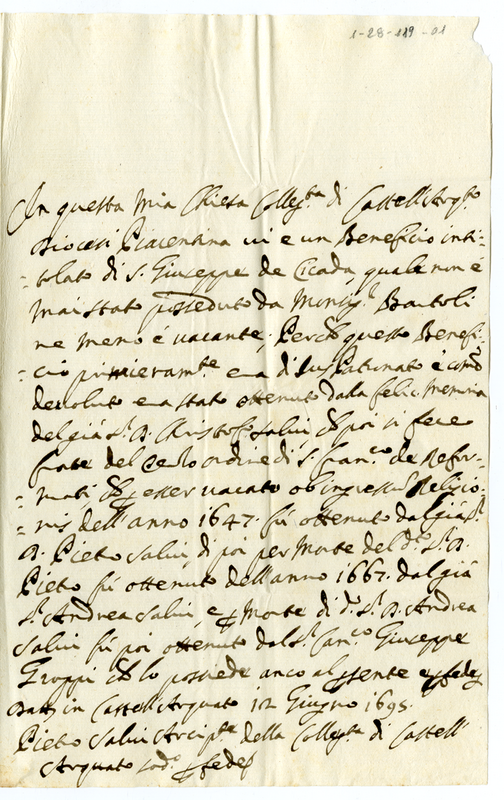 1-28-119-01
In questa mia Chiesa Colleg.ta di Castell'Arq.to
Diocesi Piacentina vi e un Beneficio inti-
-tolato di S. Giuseppe de Cicada quale non è
mai stato posseduto da Monsig.r Bartoli
ne meno è vacante; Perche questo Benefi-
-cio primieram.te era di Jus Patronato è come
devoluto era stato ottenuto dalla felic. memoria
del già S.r D. Christof. Salvi, che poi si fece
frate del ordine di S. Fran.co de Refor-
-mati, esser vacato ob ingressum Religio-
-nis dell'anno 1647. fù ottenuto dal già S.r
D. Pietro Salvi, di poi per Morte del d.o S.r D.
Pietro fù ottenuto dell'anno 1667. dal già
S.r Andrea Salvi, e p Morte di d.o S.r D. Andrea
Salvi fù poi ottenuto dal S.r Can.co Giuseppe
Groppi che lo possiede anco al presente e p fede
in Castell'Arquato 12 Giugno 1695.
Pietro Salvi Arcip.te della Colleg.ta di Castell'
Arquato p fede